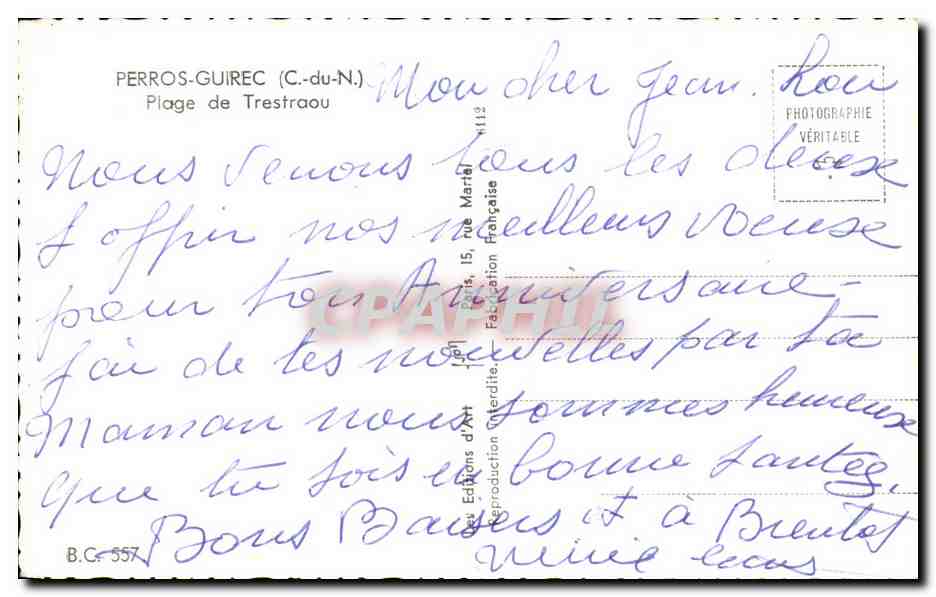 PERROS-GUIREC (C.-du-N.)
Plage de Trestraou
Mon cher Jean. Lou
PHOTOGRAPHIE
VÉRITABLE
Nous venons tous les deux
t offrir nos meilleurs voeux
pour ton Anniversaire -
j'ai de tes nouvelles par ta
Maman nous sommes heureux
que tu sois en bonne santée,
Bons Baisers et à Bientot
B.C. 557
Les Editions d'Art Paris, 15, rue Martel
Reproduction Interdite. — Fabrication Française
6112
CPAPHIL